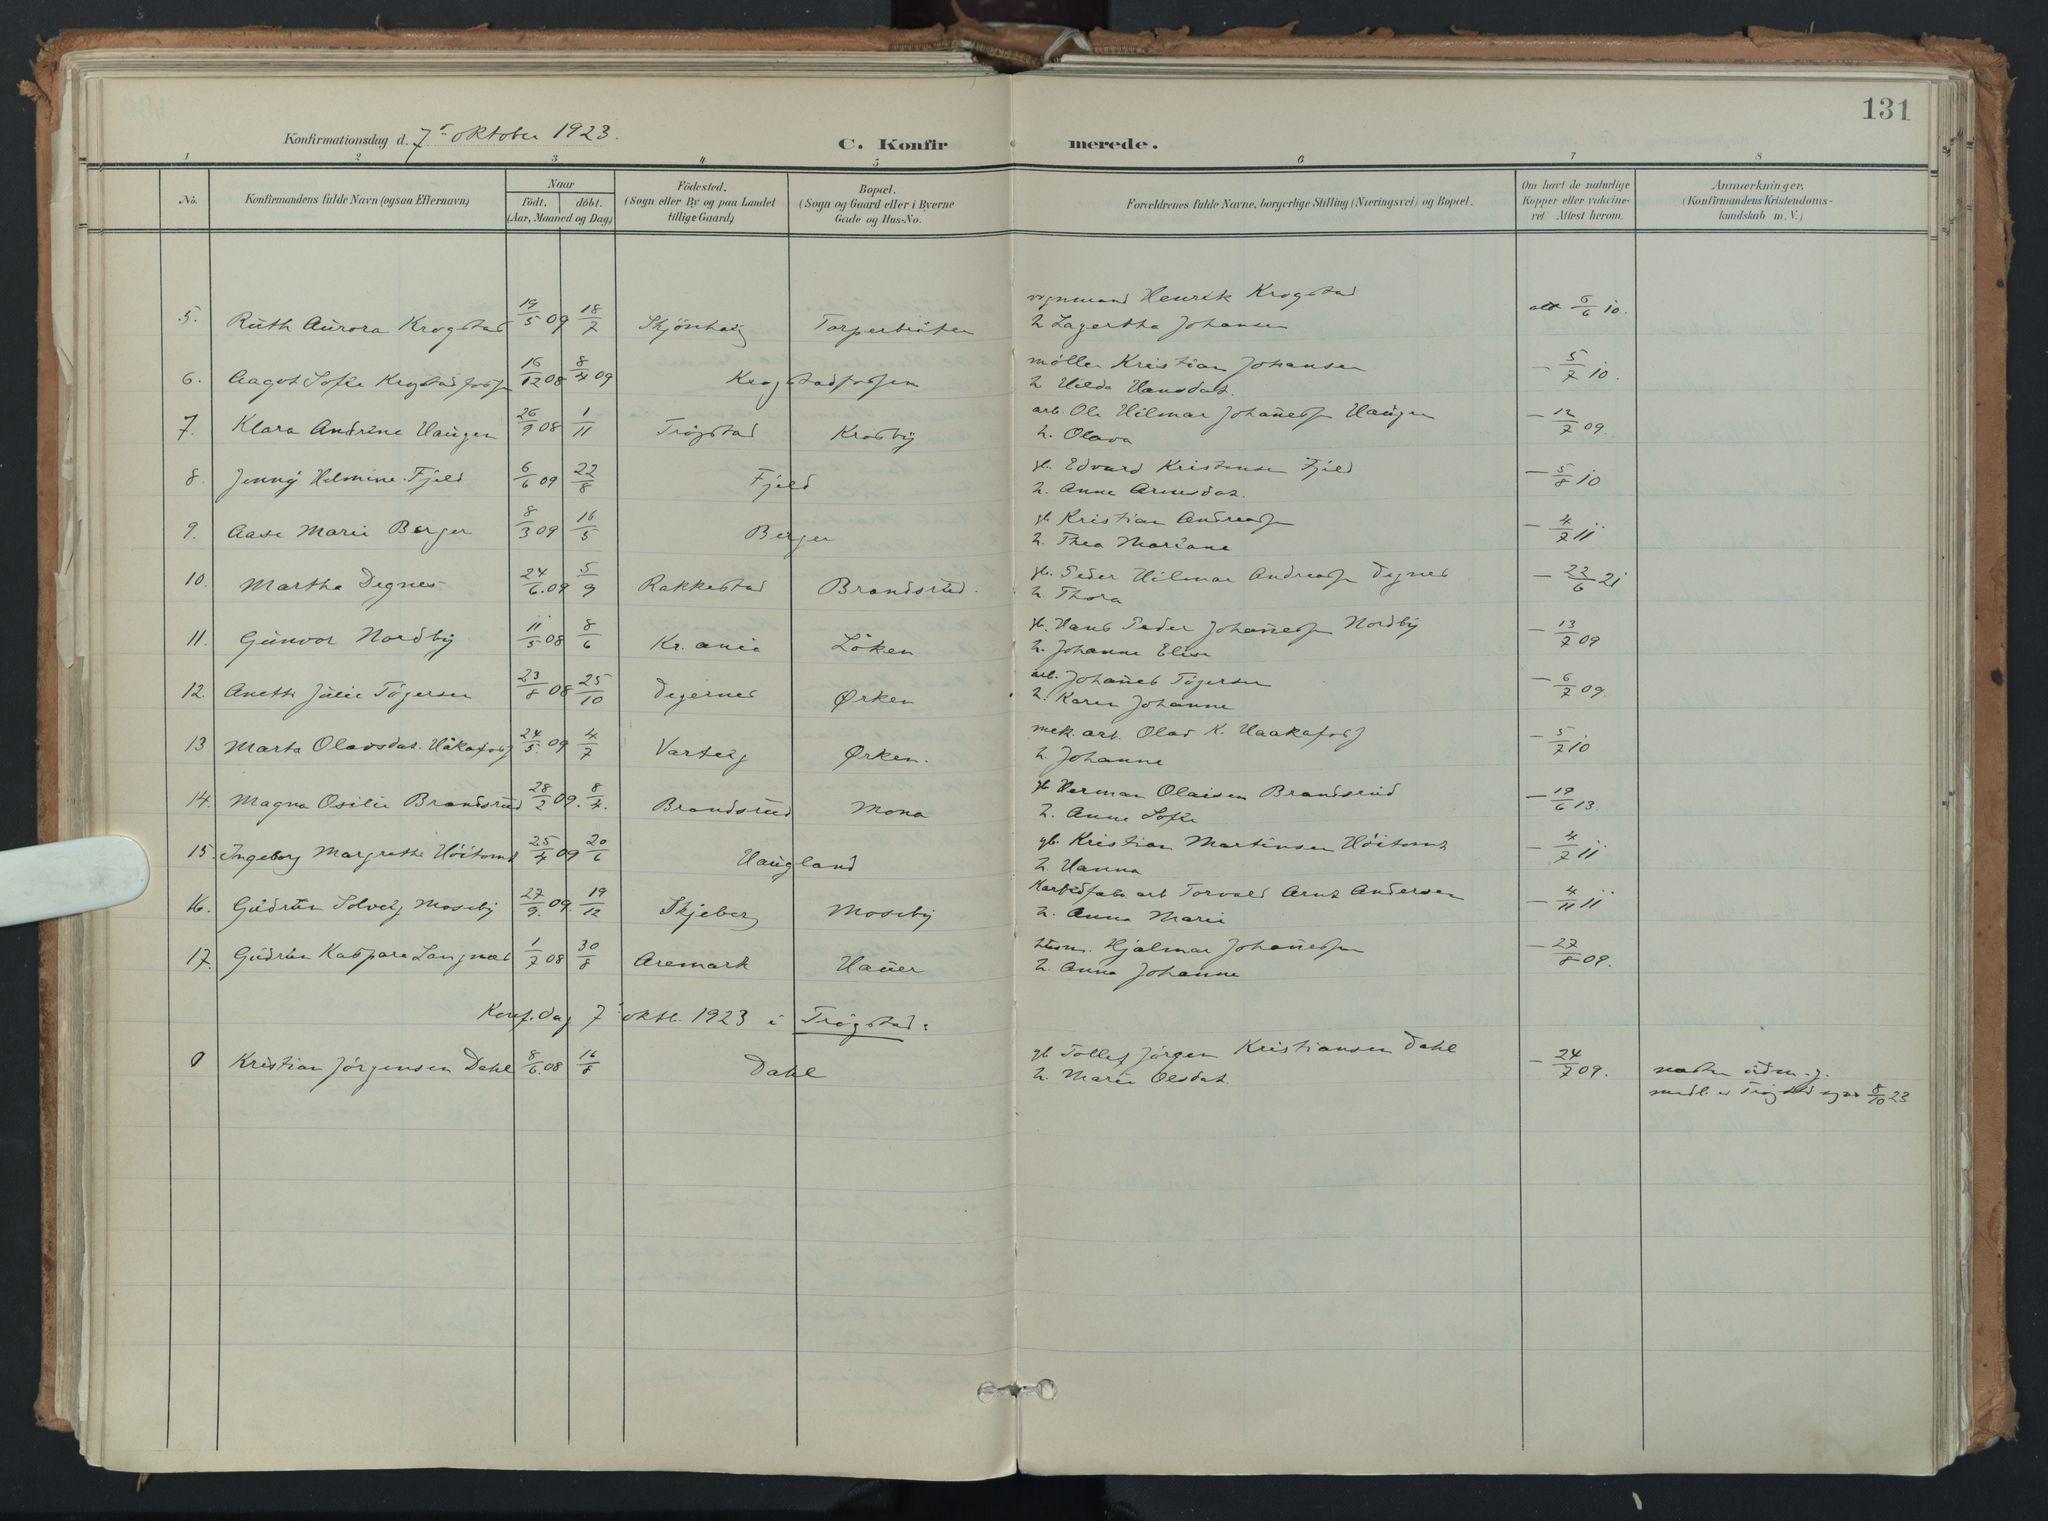 131
Konfirmationsdag d. 7de oktober 1923.
C. Konfirmerede.
1 2 3 4 5 6 7 8
No.
Konfirmandens fulde Navn (ogsaa Efternavn)
Naar
födt. döbt.
(Aar, Maaned og Dag)
Födested.
(Sogn eller By og paa Landet
tillige Gaard)
Bopæl.
(Sogn og Gaard eller i Byerne
Gade og Hus-No.
Forældrenes fulde Navne, borgerlige Stilling (Næringsvei) og Bopæl.
Om havt de naturlige
Kopper eller vakcine-
ret Attest herom.
Anmærkninger.
(Konfirmandens Kristendoms-
kundskab m. V.)
5. Ruth Aurora Krogstad 19/5 09 18/7 Skjönhaug
vognmand Henrik Krogstad
h. Lagertha Johansen
att 6/6 10.
6. Aagot Sofie Krogstadfossen 16/12 08 8/4 09 Krogstadfossen
møller Kristian Johansen
h. Hilda Hansdat.
— 5/7 10.
7. Klara Andrine Haugen 26/9 08 1/11 Trögstad Krosby
arb. Ole Hilmar Johannessen Haugen
h. Olava
— 12/7 09.
8. Jenny Helmine Fjeld 6/6 09 22/8 Fjeld
gb. Edvard Kristensen Fjeld
h. Anne Arnesdat.
— 5/8 10
9. Aase Marie Berger 8/3 09 16/5 Berger
gb. Kristian Andreassen
h. Thea Mariane
— 4/7 11
10. Martha Degnes 24/6. 09 5/9 Rakkestad Brandsrud.
gb. Peder Hilmar Andreassen Degnes
h. Thora
— 22/6 21
11. Gunvor Nordby 11/5 08 8/6 Kr.ania Löken
gb. Hans Peder Johannessen Nordby
h. Johanne Elise
— 13/7 09
12. Anette Julie Tögersen 23/8 08 25/10 Degernes Ørken
arb. Johannes Tögersen
h. Karen Johanne
— 6/7 09.
13 Marta Olavsdat. Håkafoss 24/5. 09 4/7 Varteig Ørken.
mek. arb. Olav K. Haakafoss
h. Johanne
— 5/7 10
14. Magna Osilie Brandsrud 28/2 09. 8/4. Brandsrud Mona
gb Herman Olaisen Brandsrud
h. Anne Sofie
— 19/6 13.
15. Ingeborg Margrethe Höitomt 25/4 09 20/6 Haugland
gb. Kristian Martinsen Höitomt
h. Hanna
— 4/7 11
16. Gudrun Solveig Moseby 27/9. 09. 19/12 Skjeberg Moseby
Karbidfabr. arb Torvald Arnt Andersen
h. Anna Marie
— 4/11 11
17. Gudrun Kaspara Langnæs 1/7 08 30/8 Aremark Hauer
Hjalmar Johannessen
h. Anna Johanne
— 27/8 09.
Konf.dag 7de oktb. 1923 i Trögstad:
Kristian Jörgensen Dahl 8/6. 08 16/8 Dahl
gb Tollef Jörgen Kristiansen Dahl
h. Marie Olsdat.
— 24/7 09.
næsten udm. g.
medl. Trögstad 8/10 23